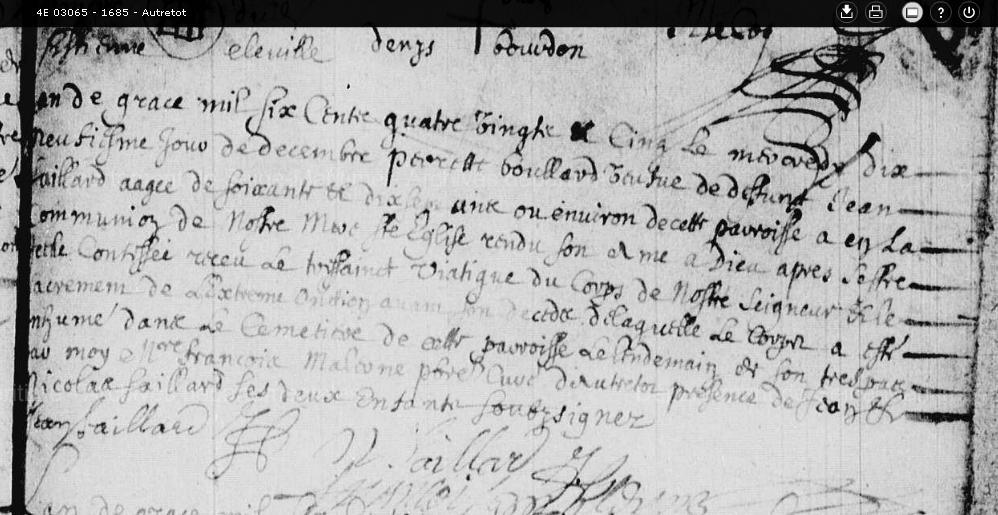 4E 03065 - 1685 - Autretot
eleville denys bourdon
an de grace mil six Cents quatre vingts & Cinq Le mercredy dix
neufiesme Jour de decembre perrette boullard veufue de defunct Jean
saillard aagee de soixante et dixsept ans ou environ de cette parroisse a en La
Communion de Nostre Mere ste Eglise rendu son ame a Dieu apres sestre
Confessee receu Le tressainct Viatique du Corps de Nostre Seigneur & le
sacrement de L'Extreme Onction avant son decedz de laquelle Le Corps a esté
inhumé dans Le Cemetiere de cette parroisse Le Lendemain de son trespas
par moy Mre francois pbre Curé d'Autretot presence de Jean &
Nicolas saillard ses deux Enfants soubzsignez
Jean saillard
N Saillard
an de grace mil